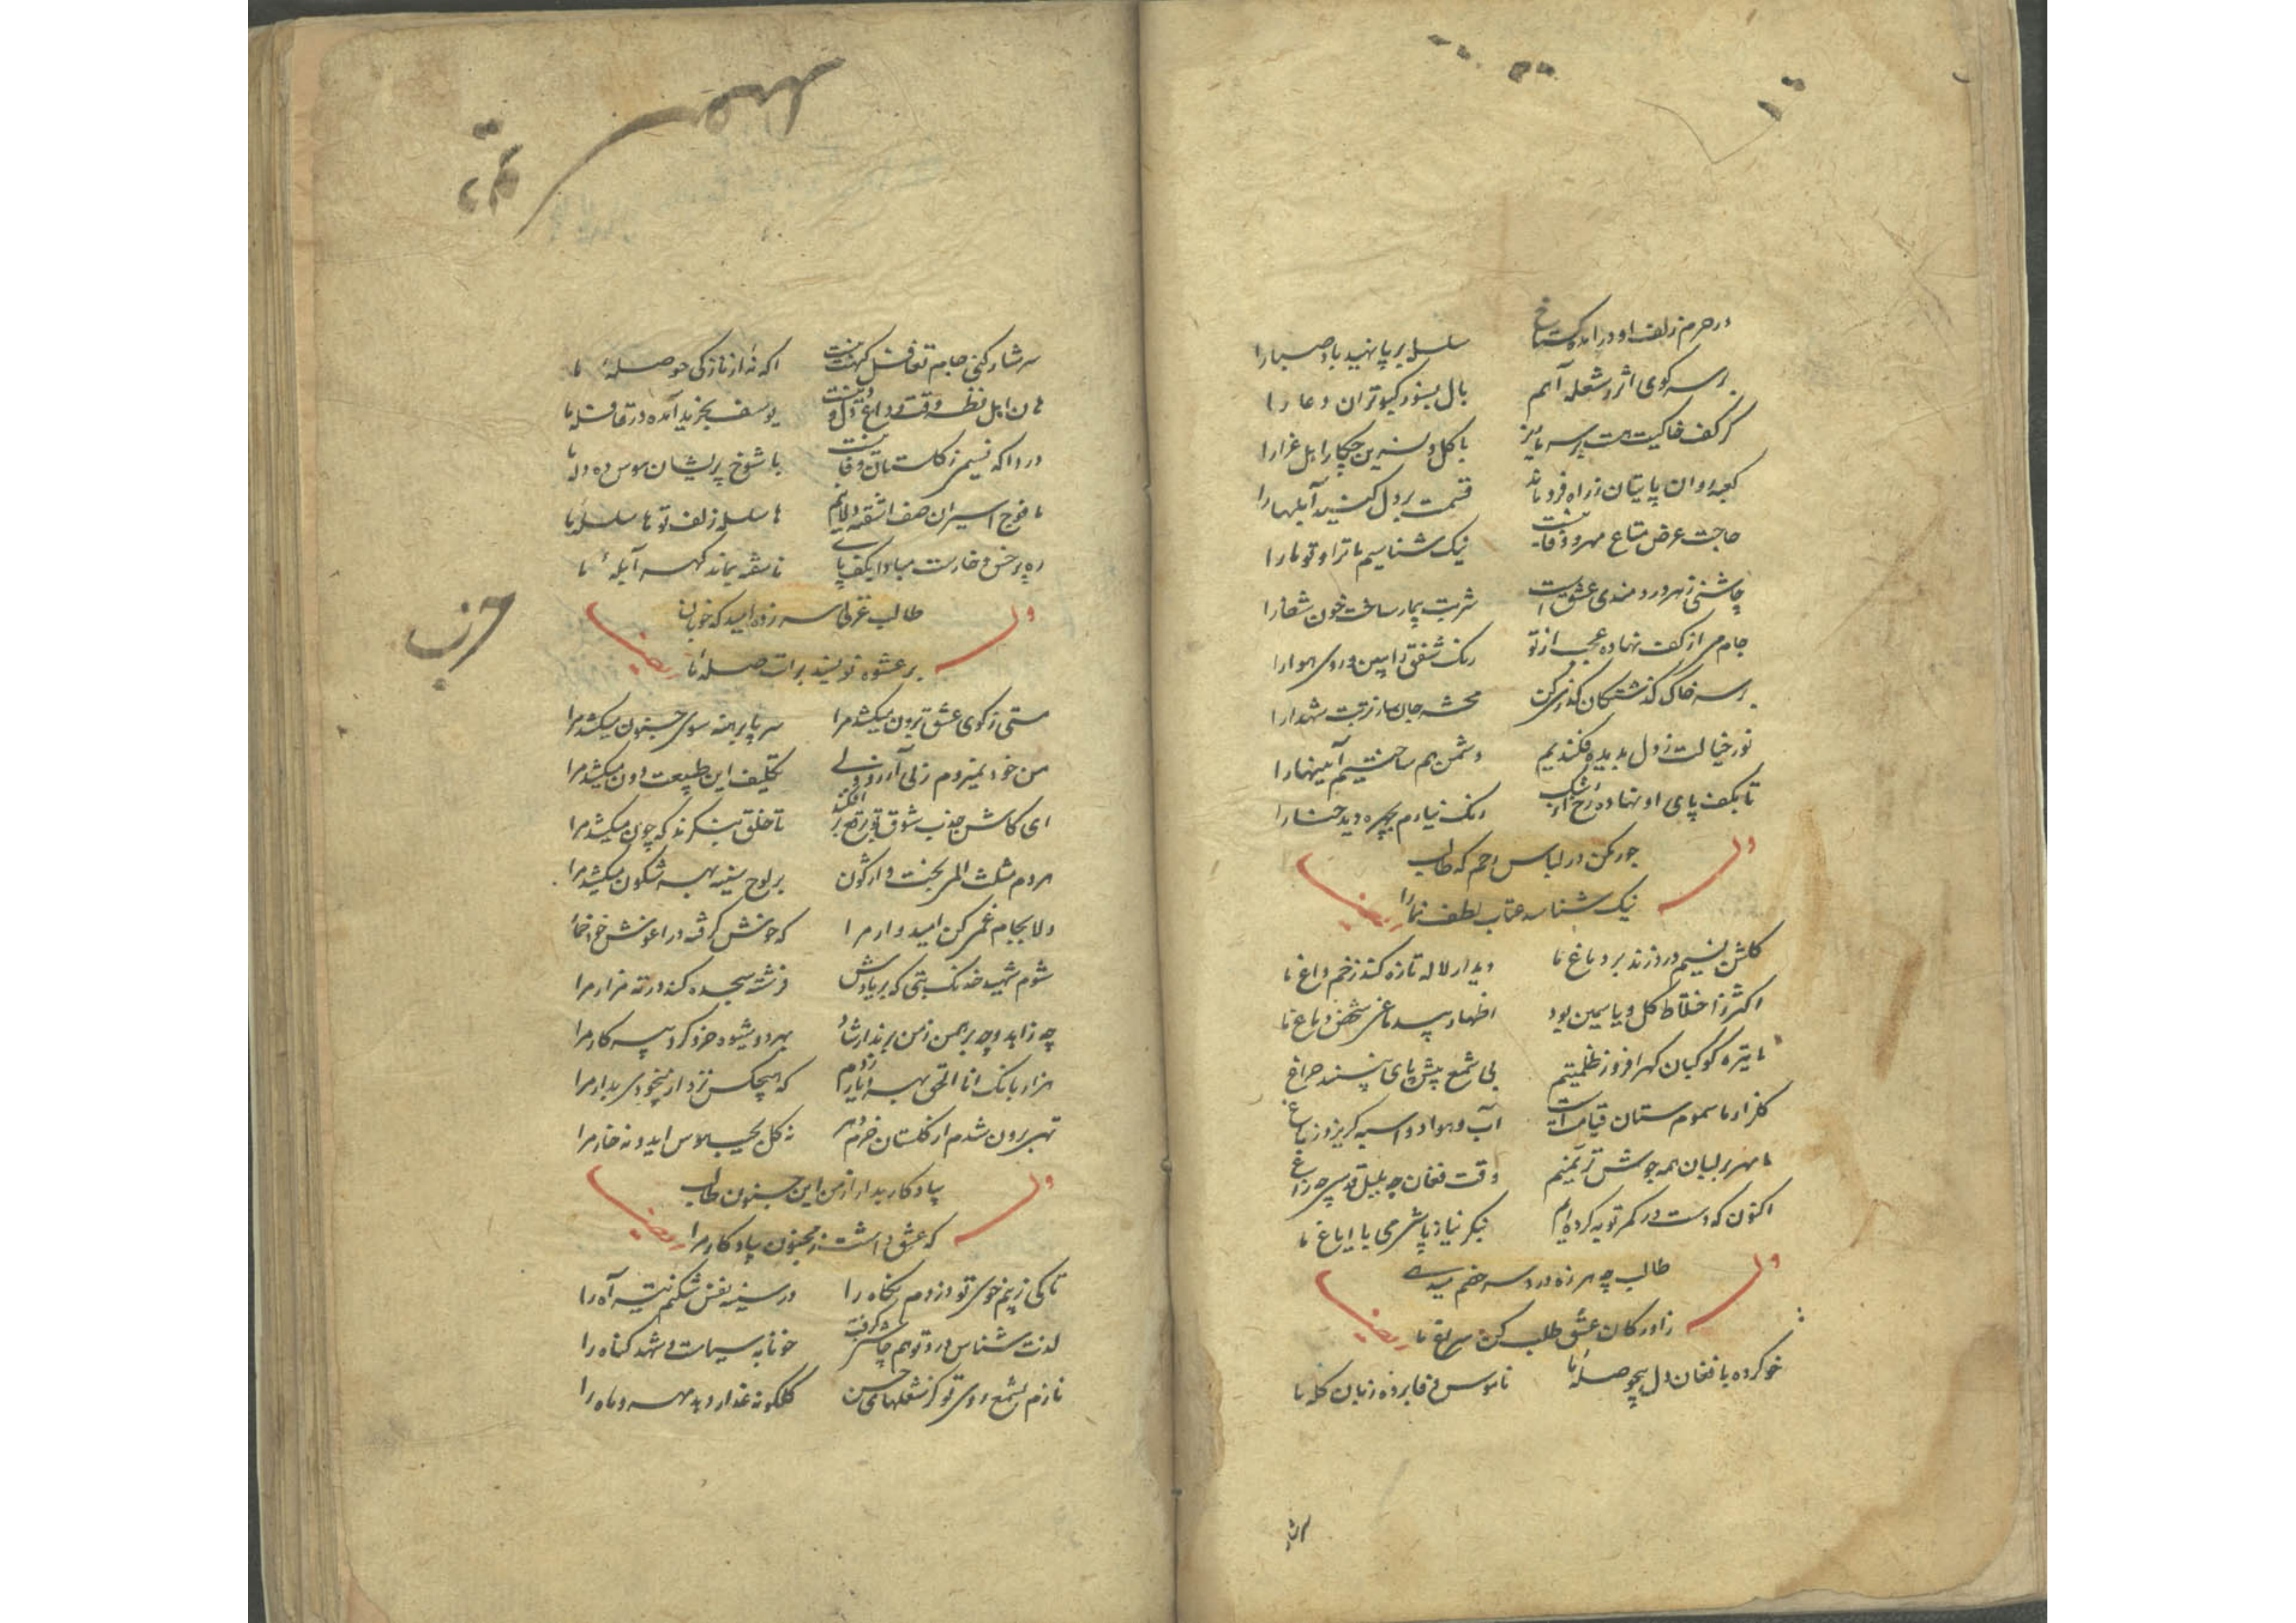 در حرم زلف او درآمده گستاخ سلسله بر پا نهید باد صبا را
بر سر کوی اثر ز شعله آهم بال بسوزد کبوتران دعا را
گر کف خاکیت هست بر سر ما ریز با گل و نسرین چکار اهل عزا را
کعبه روان پایتان ز راه فرو ماند قسمت بر دل کنید آبلها را
حاجت عرض متاع مهر و وفا نیست نیک شناسیم ما ترا و تو ما را
چاشنی زهر دردمندی عشق است شربت بیمار ساخت خون شفا را
جام می از کف نهاده عجب از تو رنک شفق را ببین و روی هوا را
بر سر خاک گذشتگان گذری کن محشر جان ساز تربت شهدا را
نور خیالت ز دل بدیده فکندیم دشمن هم ساختیم آیینها را
تا بکف پای او نهاده رخ از اشک رنک نیارم بچهره دید حنا را
وله
جور مکن در لباس رحم که طالب
نیک شناسد عتاب لطف نما را
ایضا
گلشن نسیم درد زند بر دماغ ما دیدار لاله تازه کند زخم داغ ما
اکثر ز اختلاط گل و یاسمین بود اظهار بیدماغی شخص دماغ ما
ما تیره کوکبان گهر افروز ظلمتیم بی شمع پیش پای نبیند چراغ ما
گلزار ما سموم ستان قیامت است آب و هوا دو اسبه گریزد ز باغ ما
ما مهر بر لبان همه جوش ترنمیم وقت فغان چه بلبل قدسی چه زاغ ما
اکنون که دست در کمر توبه کرده ایم بنگر نیاز پاشی می با ایاغ ما
وله
طالب چه هرزه دردسر خضر میدهی
ز آوارگان عشق طلب کن سراغ ما
ایضا
خو کرده بافغان دل بیحوصلهٔ ما ناموس وفا برده زبان گله ما
سرشار
سرشار کنی جام تغافل گهت نیست آگه نهٔ از نازکی حوصلهٔ ما
هان اهل نظر وقت وداع دل و دینست یوسف بخرید آمده در قافله ما
دردا که نسیمی ز گلستان وفا نیست با شوخ پریشان هوس ده دله ما
ما فوج اسیران صف آشفته دلانیم ها سلسله زلف تو ها سلسله ما
ره پر خس و خارست مبادا بکف پای ناسفته بماند گهر آبلهٔ ما
وله
طالب غزلی سر زده امید که خوبان
بر عشوه نویسند برات صلهٔ ما
ایضا
مستی ز کوی عشق برون میکشد مرا سر پا برهنه سوی جنون میکشد مرا
من خود نمیروم ز پی آرزو ولی تکلیف این طبیعت دون میکشد مرا
ای کاش جذب شوق تو برقع بر افکند تا خلق بنگرند که چون میکشد مرا
هر دم مثلث الم بخت واژگون بر لوح سینه بهر شگون میکشد مرا
دلا بجام غمی کن امیدوار مرا که خوش گرفته در آغوش خود خمار مرا
شوم شهید خدنک بتی که بر یادش فرشته سجده کند در ته مزار مرا
چه زاهد و چه برهمن ز من برندارشاد بهر دو شیوه خرد کرد پیر کار مرا
هزار بانک انا الحق بهر دیار زدم که هیچکس نزد از بیخودی بدار مرا
تهی برون شدم از گلستان خرم دهر نه گل بجیب هوس آید و نه خار مرا
وله
بیادگار بدار از من این جنون طالب
که عشق داشت ز مجنون بیادگار مرا
ایضا
تا کی ز بیم خوی تو دزدم نگاه را در سینه نفس شکنم نیشتر آه را
لذت شناس درد تو هم چاشنی گرفت خونابه سیاست و شهد گناه را
نازم بشمع روی تو کز شعلهای حسن گلگونه عذار دهد مهر و ماه را